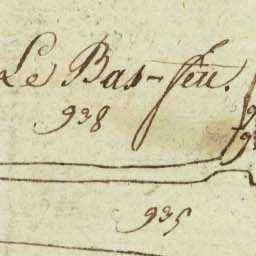 Le Bas-feu.
938
935